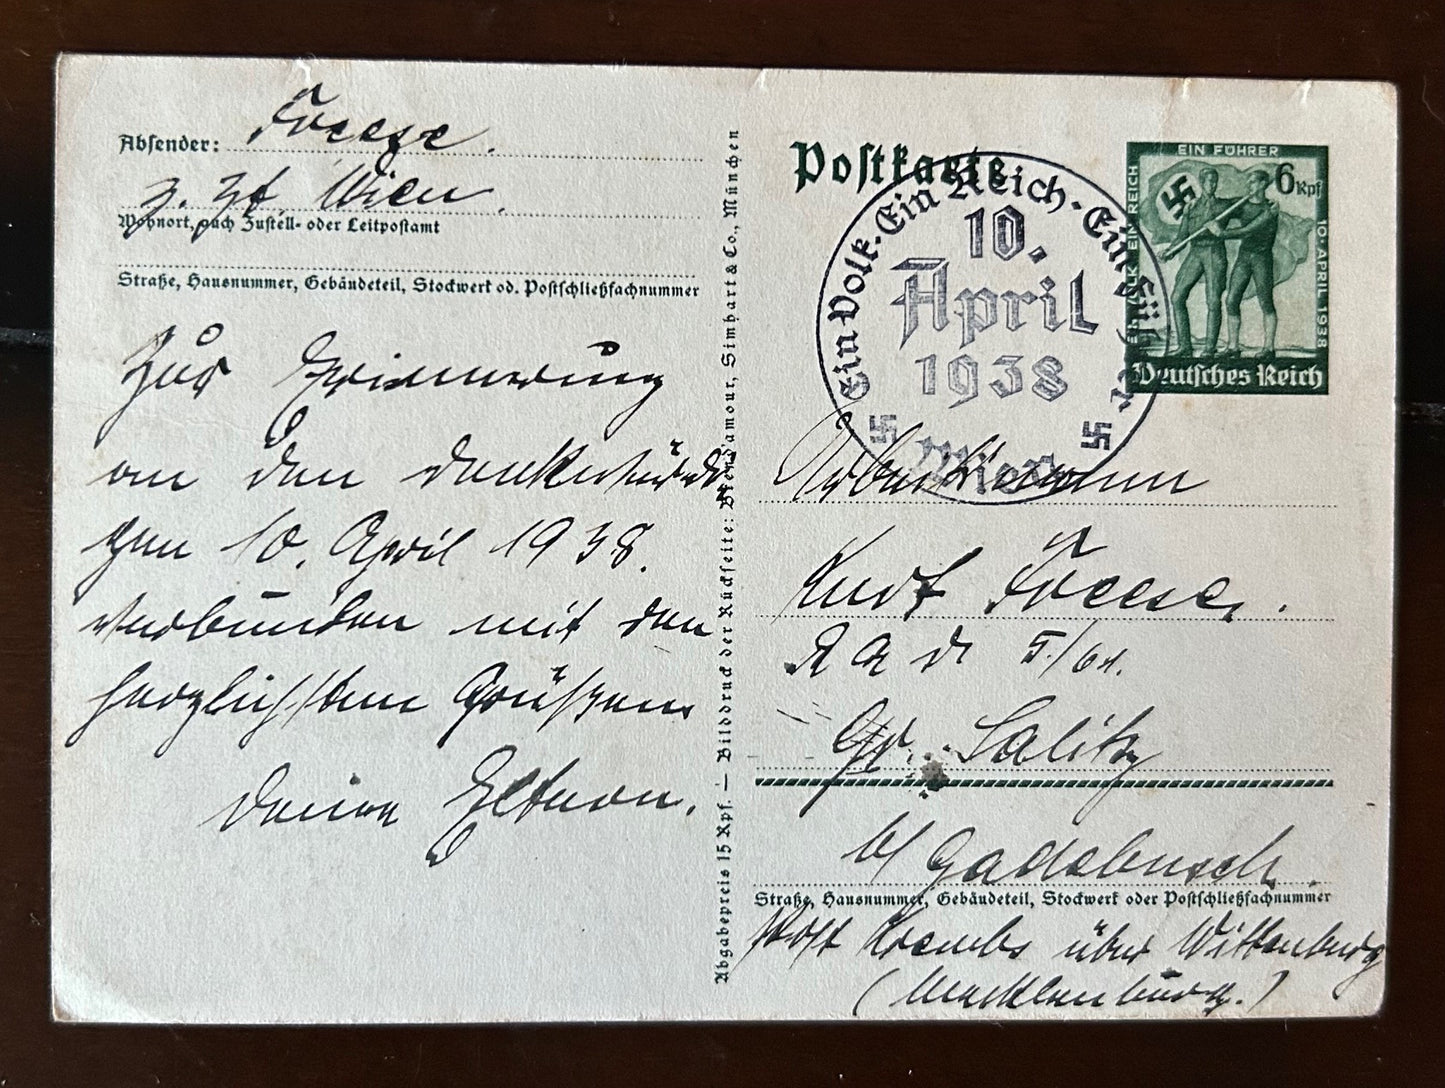 Absender: Froese.
z. Zt. Wien.
Wohnort, auch Zustell- oder Leitpostamt
Straße, Hausnummer, Gebäudeteil, Stockwerk od. Postschließfachnummer
Zur Erinnerung
an den denkwürdi
gen 10. April 1938.
verbunden mit den
herzlichsten Grüßen
deine Eltern.
Abgabepreis 15 Rpf. — Bilddruck der Rückseite: Brend'amour, Simhart & Co., München
Postkarte
Ein Volk-Ein Reich-Ein Führer
10.
April
1938
Wien
EIN VOLK EIN REICH
EIN FÜHRER
6 Rpf
10·APRIL 1938
Deutsches Reich
Arbeitsmann
Kurt Froese.
R A D 5/61.
Gr. Salitz
b/ Gadebusch.
Straße, Hausnummer, Gebäudeteil, Stockwerk oder Postschließfachnummer
Post Krembs über Wittenburg
(Mecklenburg.)